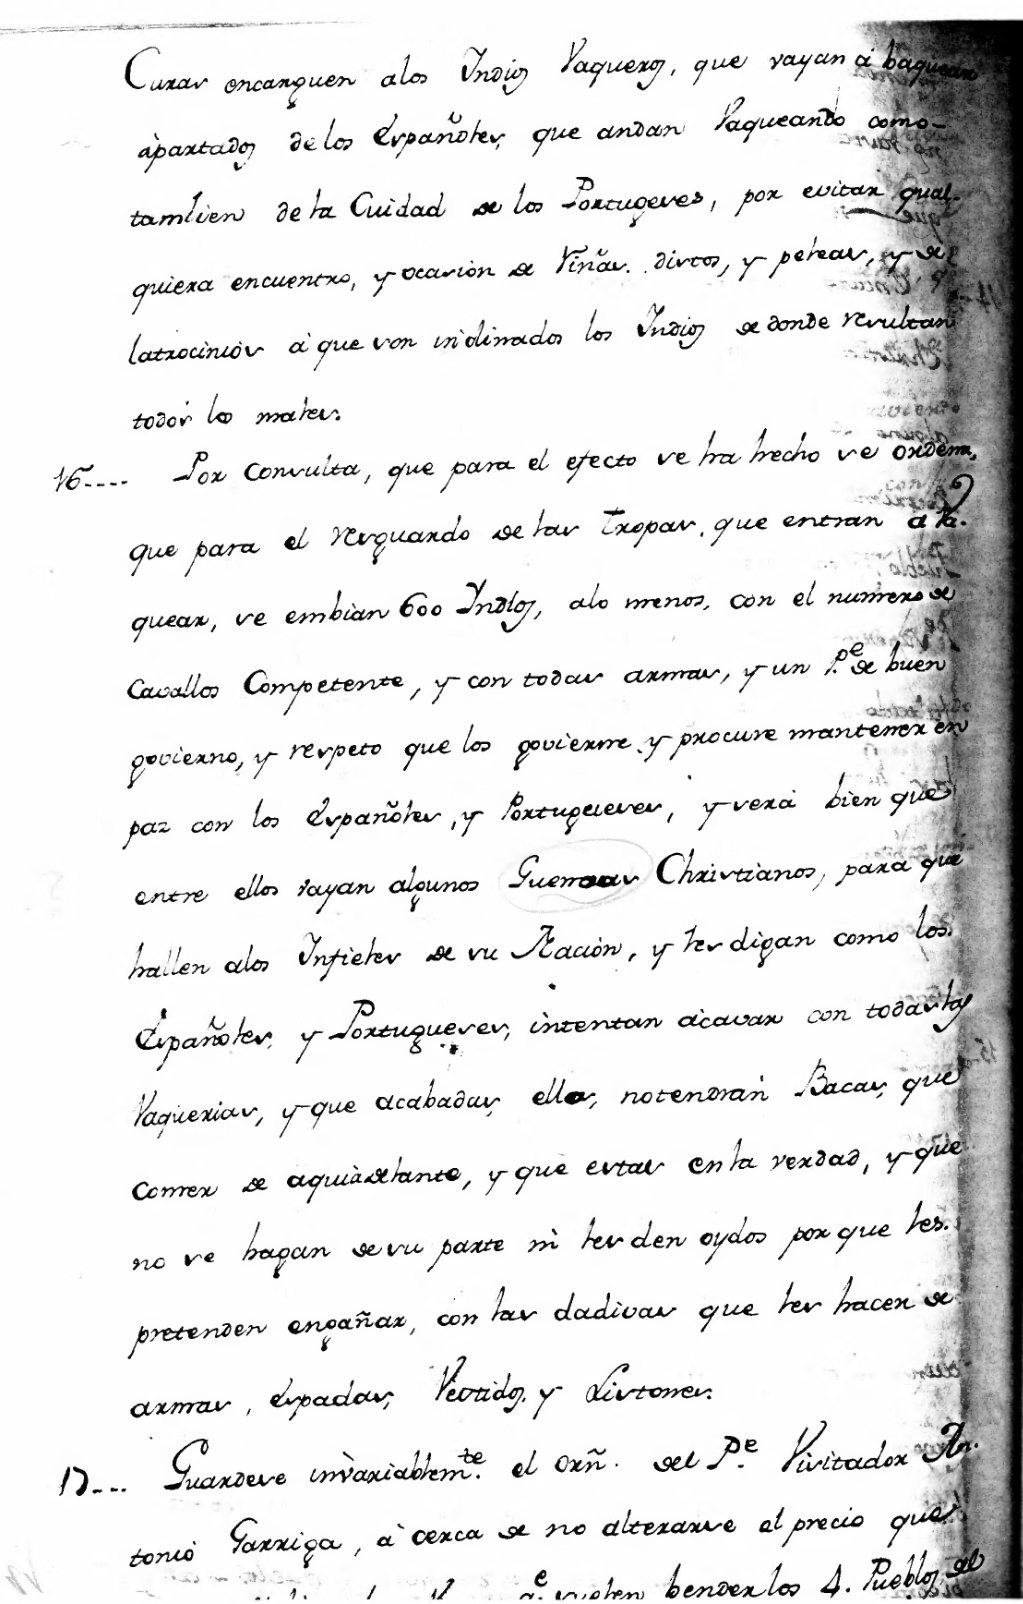 Curas encarguen alos Indios Vaqueros, que vayan á baquear
àpartados de los Españoles, que andan Vaqueando como-
tambien de la Cuidad de los Portugeses, por evitar qual-
quiera encuentro, y ocasion de Viñas. distos, y peleas, y de
latrocinios á que son inclinados los Indios de donde resultan
todos los males.
16.... Por Consulta, que para el efecto se ha hecho se ordena,
que para el resguardo de las Tropas, que entran a Va.
quear, se embian 600 Indios, alo menos, con el numero de
Cavallos Competente, y con todas armas, y un P.e de buen
govierno, y respeto que los govierne y procure mantener en
paz con los Españoles, y Portugueses, y verá bien que
entre ellos vayan algunos Guenoas Christianos, para que
hallen alos Infieles de su Nacion, y les digan como los.
Españoles, y Portugueses, intentan acavar con todas las
Vaquerias, y que acabadas, ellas, notendrán Bacas, que
comer de aquiadelante, y que estas en la verdad, y que
no se hagan de su parte ni les den oydos por que les.
pretenden engañar, con las dadivas que les hacen de
armas, Espadas, Vestidos, y Listones.
17... Guardese invariablem.te el orñ. del P.e Visitador An.
tonio Garriga, á cerca de no alterarse el precio que
suelen bender los 4. Pueblos de